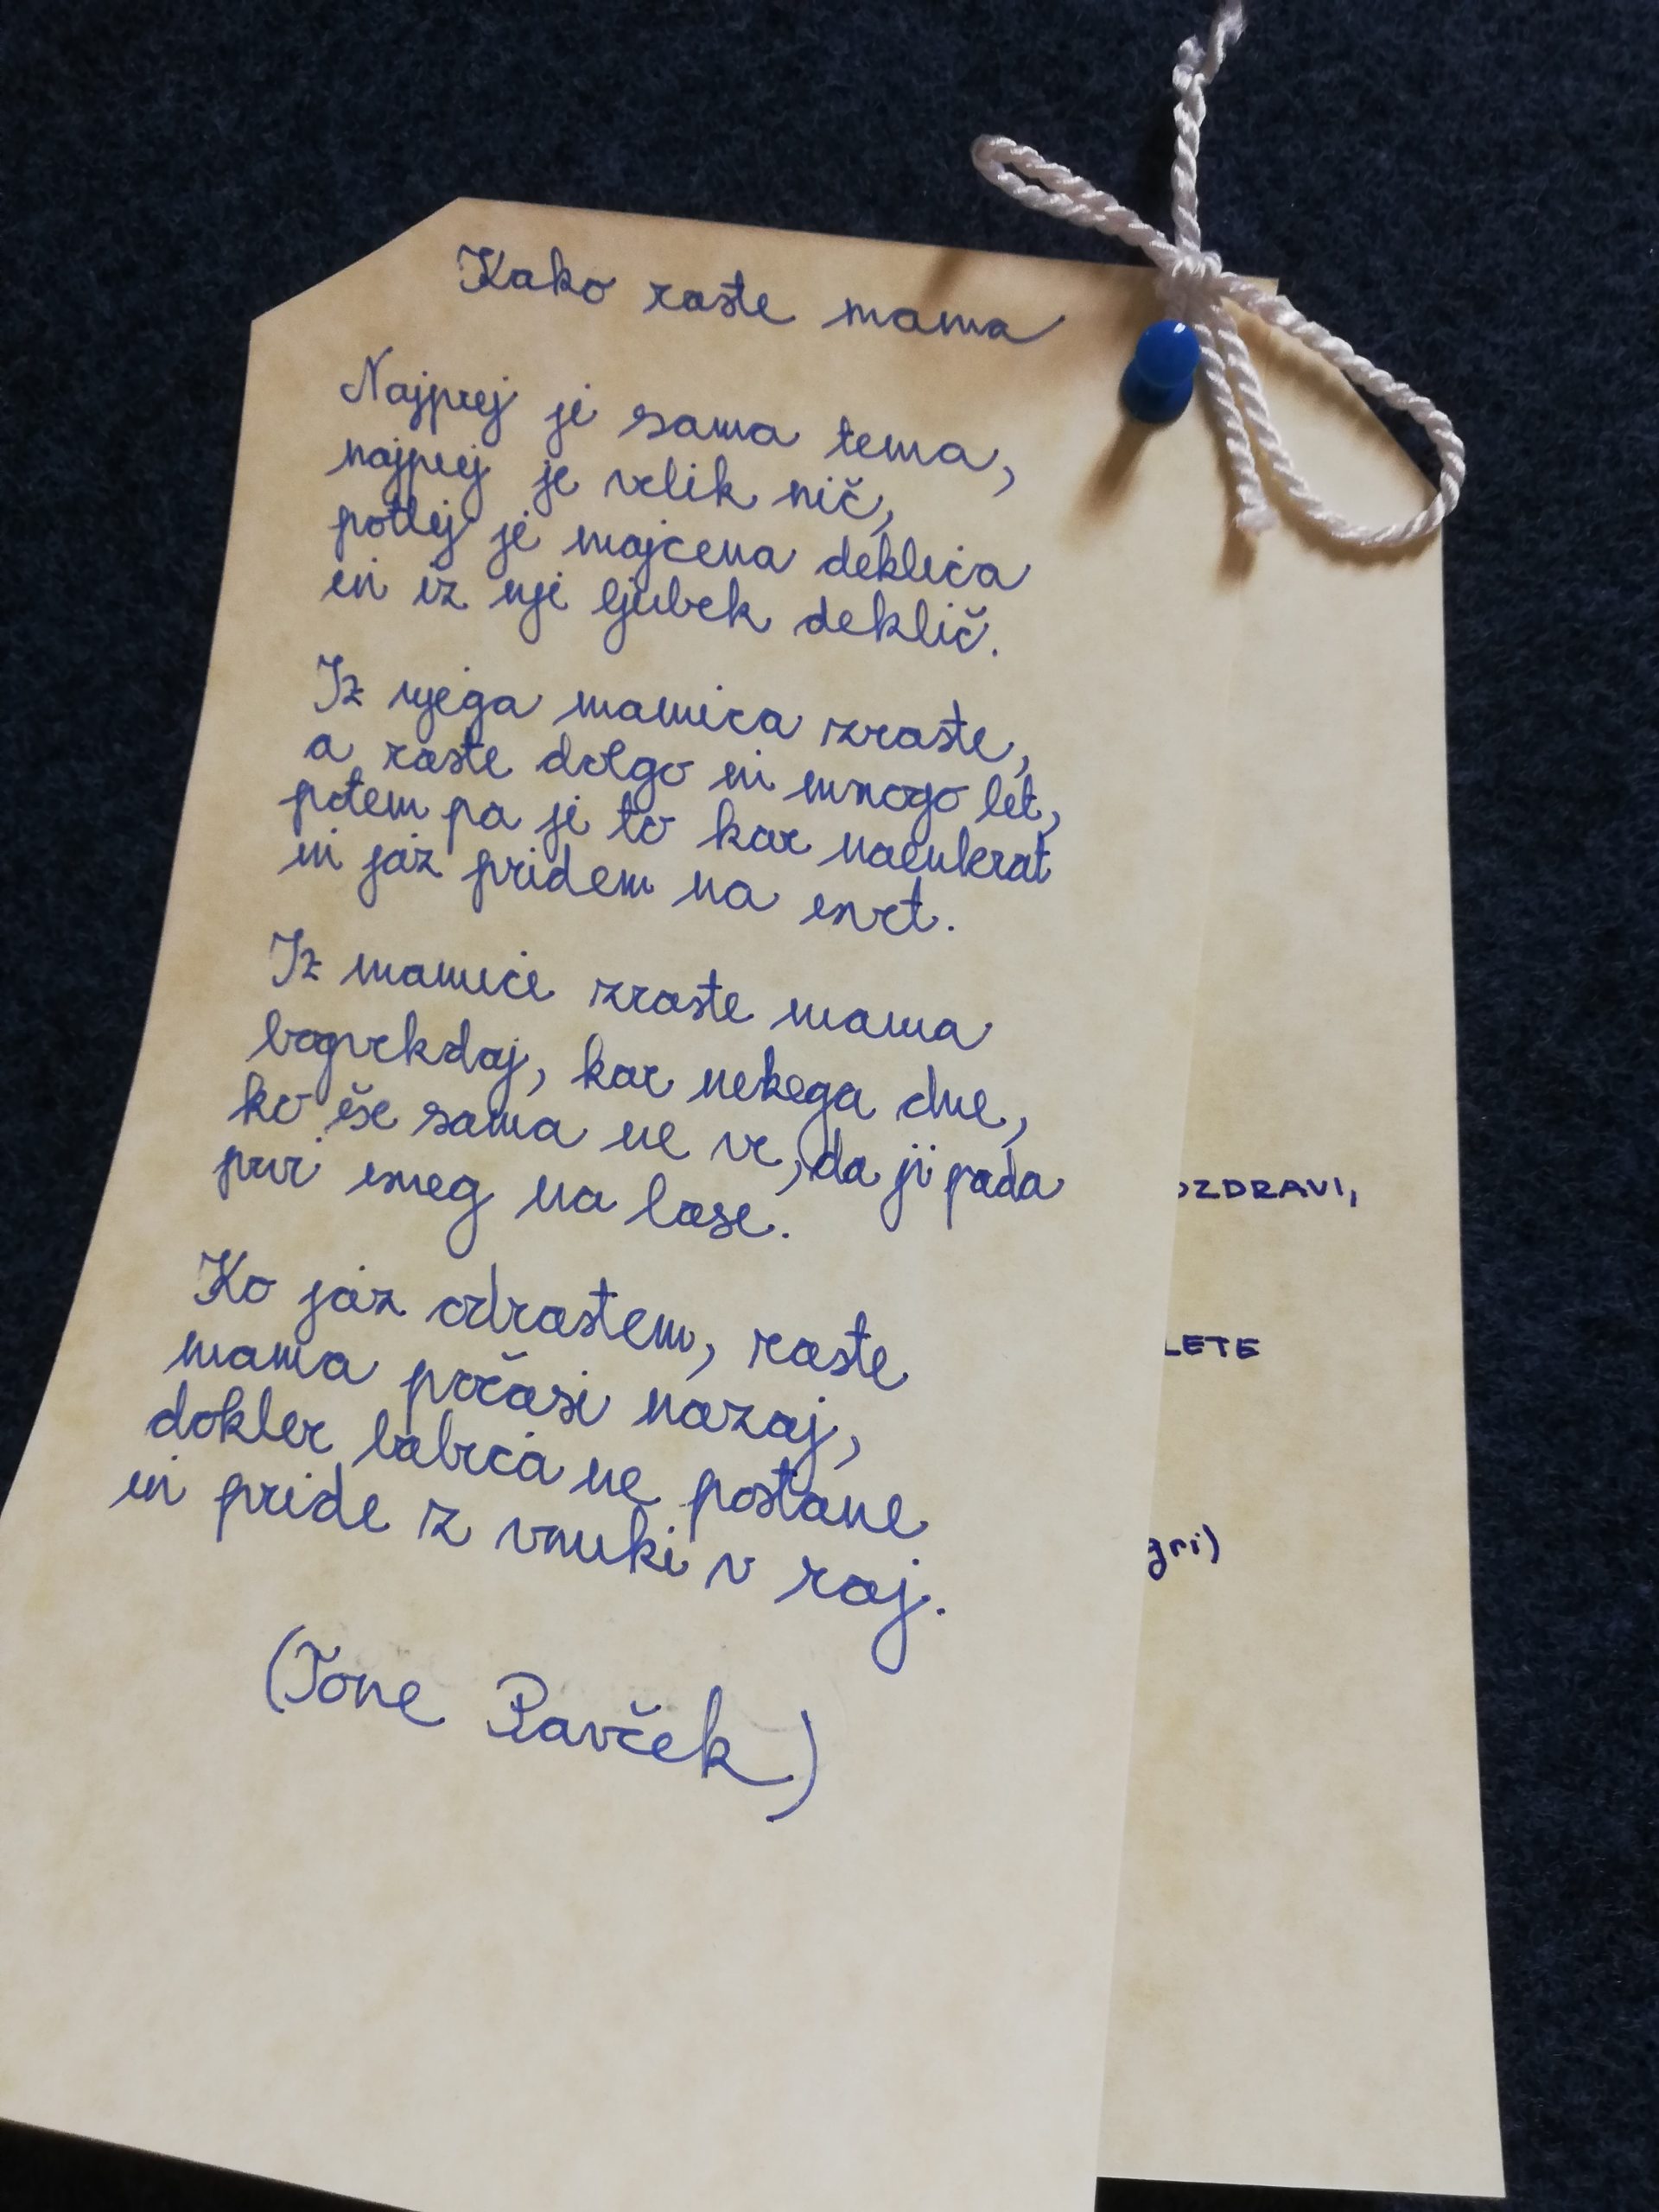 Kako raste mama
Najprej je sama tema,
najprej je velik nič,
potlej je majcena deklica
in iz nje ljubek deklič.
Iz njega mamica izraste,
a raste dolgo in mnogo let,
potem pa je to kar naenkrat
in jaz pridem na svet.
Iz mamice zraste mama
bogvekdaj, kar nekega dne,
ko še sama ne ve, da ji pada
prvi sneg na lase.
Ko jaz odrastem, raste
mama počasi nazaj,
dokler babica ne postane
in pride z vnuki v raj.
(Tone Pavček)
OZDRAVI,
LETE
gri)